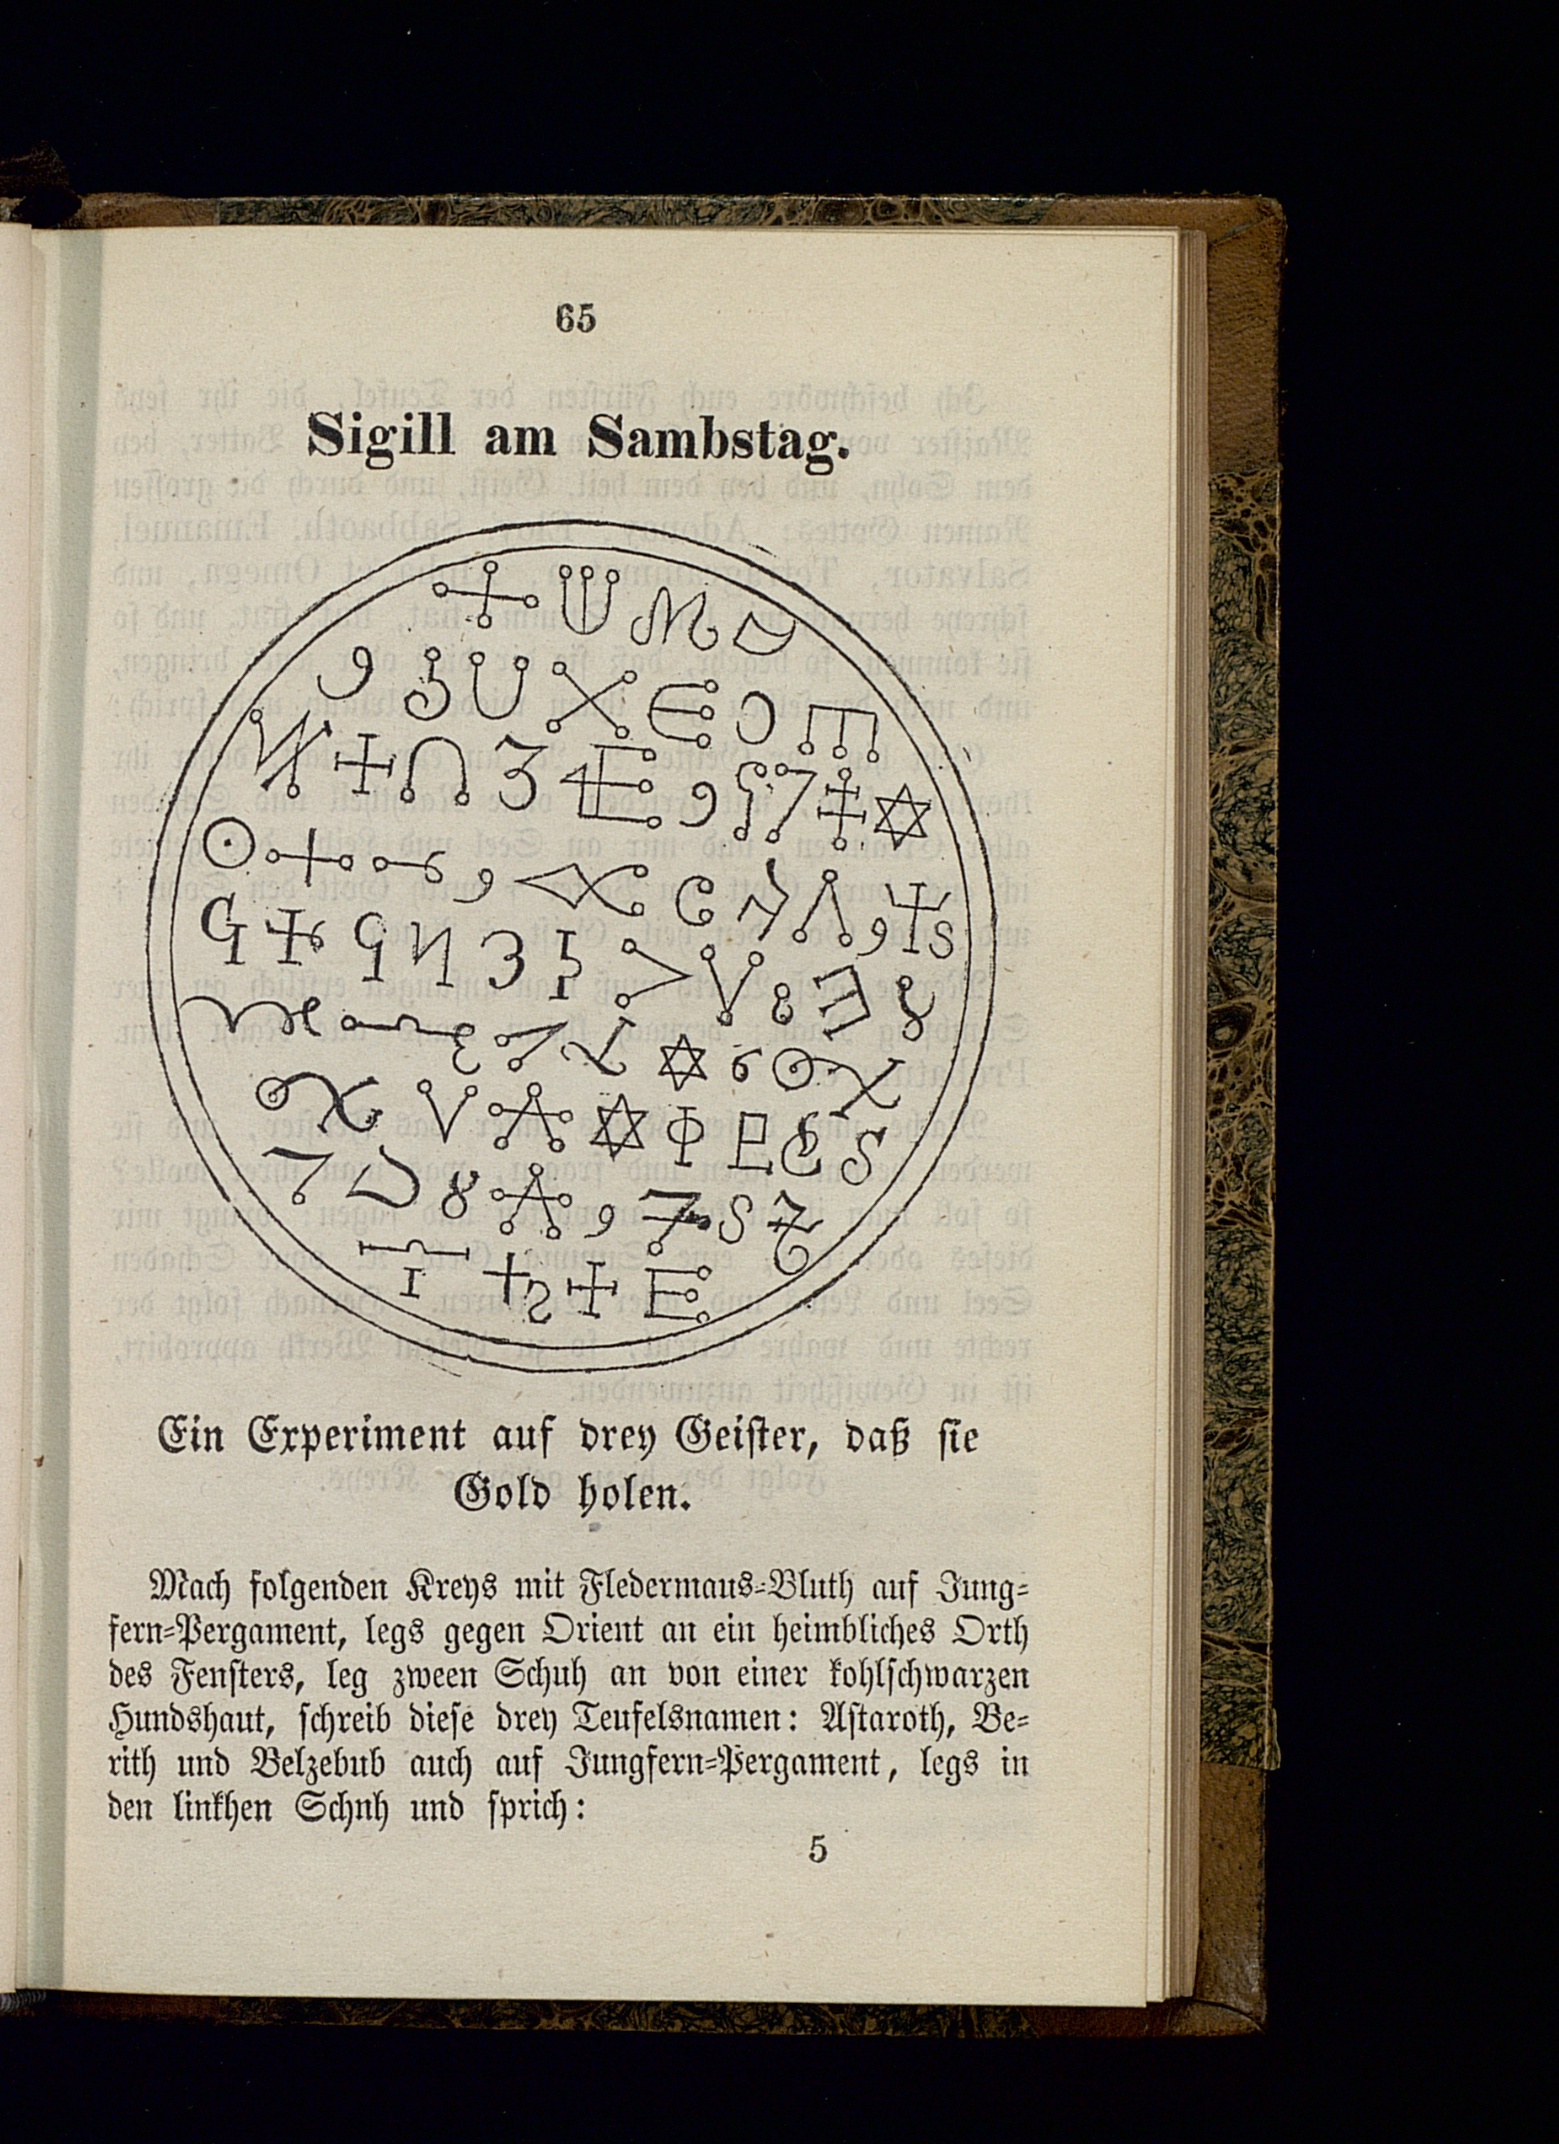 65
Sigill am Sambstag.
Ein Experiment auf drey Geister, daß sie
Gold holen.
Mach folgenden Kreys mit Fledermaus-Bluth auf Jung-
fern-Pergament, legs gegen Orient an ein heimbliches Orth
des Fensters, leg zween Schuh an von einer kohlschwarzen
Hundshaut, schreib diese drey Teufelsnamen: Astaroth, Be-
rith und Belzebub auch auf Jungfern-Pergament, legs in
den linkhen Schnh und sprich:
5